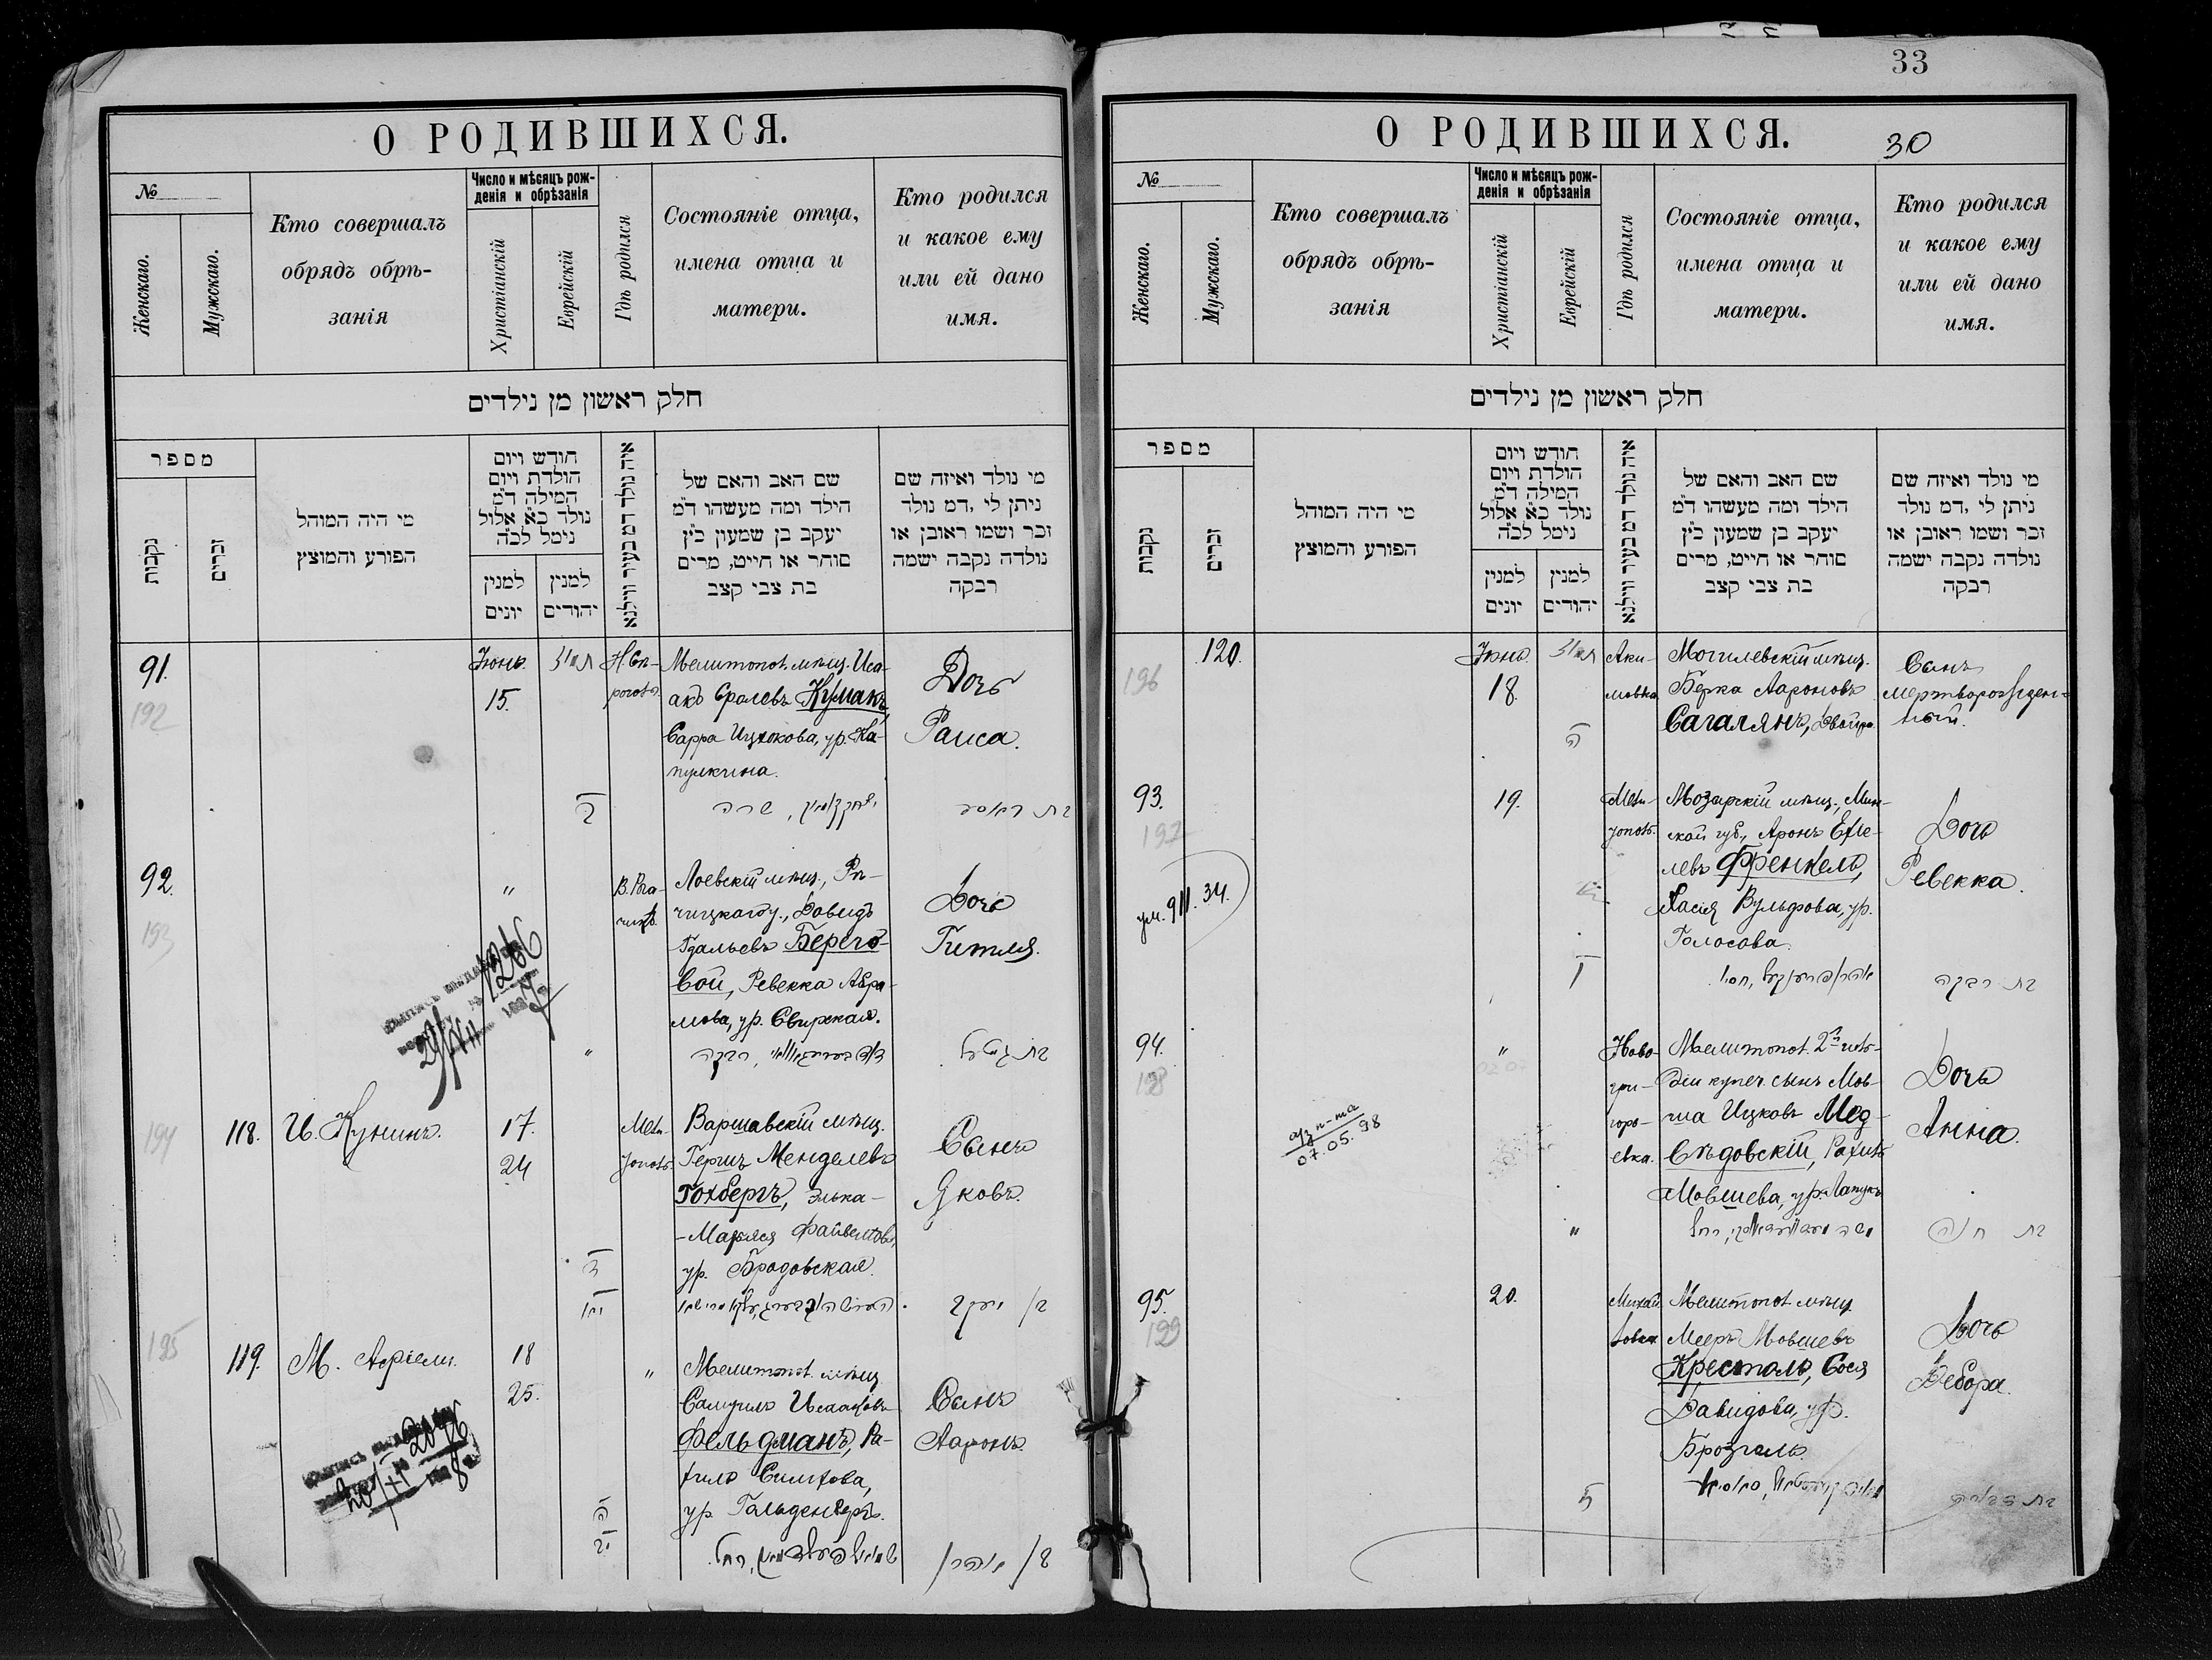 О РОДИВШИХСЯ.
№
Женскаго.
Мужскаго.
Кто совершалъ
обрядъ обрѣ-
занія
Число и мѣсяцъ рож-
денія и обрѣзанія
Христіанскій
Еврейскій
Гдѣ родился
Состояніе отца,
имена отца и
матери.
Кто родился
и какое ему
или ей дано
имя.
חלק ראשון מן נילדים
מספר
נקבות
זכרים
מי היה המוהל
הפורע והמוצץ
חודש ויום
הולדת ויום
המילה ד״מ
נולד כ״א אלול
נימל לכ״ה
למנין
יונים
למנין
יהודים
איה נולד דמ בעיר ווילנא
שם האב והאם של
הילד ומה מעשהו ד״מ
יעקב בן שמעון כ״ץ
סוחר או חייט, מרים
בת צבי קצב
מי נולד ואיזה שם
ניתן לי ,דמ נולד
זכר ושמו ראובן או
נולדה נקבה ישמה
רבקה
91.
192
Іюнь
15.
תמוז
Мелитопол. мѣщ. Иса-
акъ Сролевъ Куманъ,
Сарра Ицхокова, ур. Ка-
пулкина.
Дочь
Раиса.
שרה
92.
193
"
В. Рога-
чикъ.
Лоевскій мѣщ., Рѣ-
чицкаго у., Давидъ
Гдальевъ Берего-
вой, Ревекка Абра-
мова, ур. Свирская.
Дочь
Гитля.
רבקה
194
118.
И. Кунинъ.
17.
24
Мели-
тополь.
Варшавскій мѣщ.
Гершъ Менделевъ
Гохбергъ, Элька-
ур. Бродовская.
Сынъ
Яковъ.
יעקב
195
119.
М.
18
25.
"
Мелитопол. мѣщ.
Самуилъ Исааковъ
Фельдманъ, Ра-
хиль
ур. Гольденбергъ.
Сынъ
Ааронъ.
33
О РОДИВШИХСЯ.
30
№
Женскаго.
Мужскаго.
Кто совершалъ
обрядъ обрѣ-
занія
Число и мѣсяцъ рож-
денія и обрѣзанія
Христіанскій
Еврейскій
Гдѣ родился
Состояніе отца,
имена отца и
матери.
Кто родился
и какое ему
или ей дано
имя.
חלק ראשון מן נילדים
מספר
נקבות
זכרים
מי היה המוהל
הפורע והמוצץ
חודש ויום
הולדת ויום
המילה ד״מ
נולד כ״א אלול
נימל לכ״ה
למנין
יונים
למנין
יהודים
איה נולד דמ בעיר ווילנא
שם האב והאם של
הילד ומה מעשהו ד״מ
יעקב בן שמעון כ״ץ
סוחר או חייט, מרים
בת צבי קצב
מי נולד ואיזה שם
ניתן לי ,דמ נולד
זכר ושמו ראובן או
נולדה נקבה ישמה
רבקה
196
120.
Іюнь
18.
תמוז
Аки-
мовка
Могилевскій мѣщ.
Берка Аароновъ
Сагалянъ, Двойра
Сынъ
мертворожден-
ный.
93.
197
19.
Мели-
тополь.
Мозырскій мѣщ., Мин-
ской губ., Аронъ
левъ Френкель,
Хася Вульфова, ур.
Голосова.
Дочь
Ревекка.
בת רבקה
ум. 911. 34.
94.
198
"
Ново-
гри-
горь-
евка.
Мелитопол. 2й гиль-
діи купеч. сынъ Мов-
ша Ицковъ Мед-
вѣдовскій, Рахиль
Мовшева, ур.
Дочь
Анна.
07.05.98
95.
199
20.
Михай-
ловка
Мелитопол. мѣщ.
Меерь Мовшевъ
Кресталь, Сося
Давидова, ур.
Дочь
Дебора.